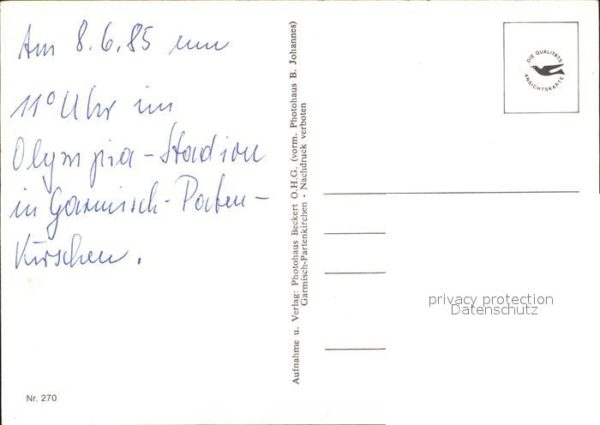 Am 8.6.85 um
11° Uhr im
Olympia-Stadion
in Garmisch-Paten-
Kirschen.
Nr. 270
Aufnahme u. Verlag: Photohaus Beckert O.H.G. (vorm. Photohaus B. Johannes)
Garmisch-Partenkirchen - Nachdruck verboten
DIE QUALITÄTS
ANSICHTSKARTE
privacy protection
Datenschutz